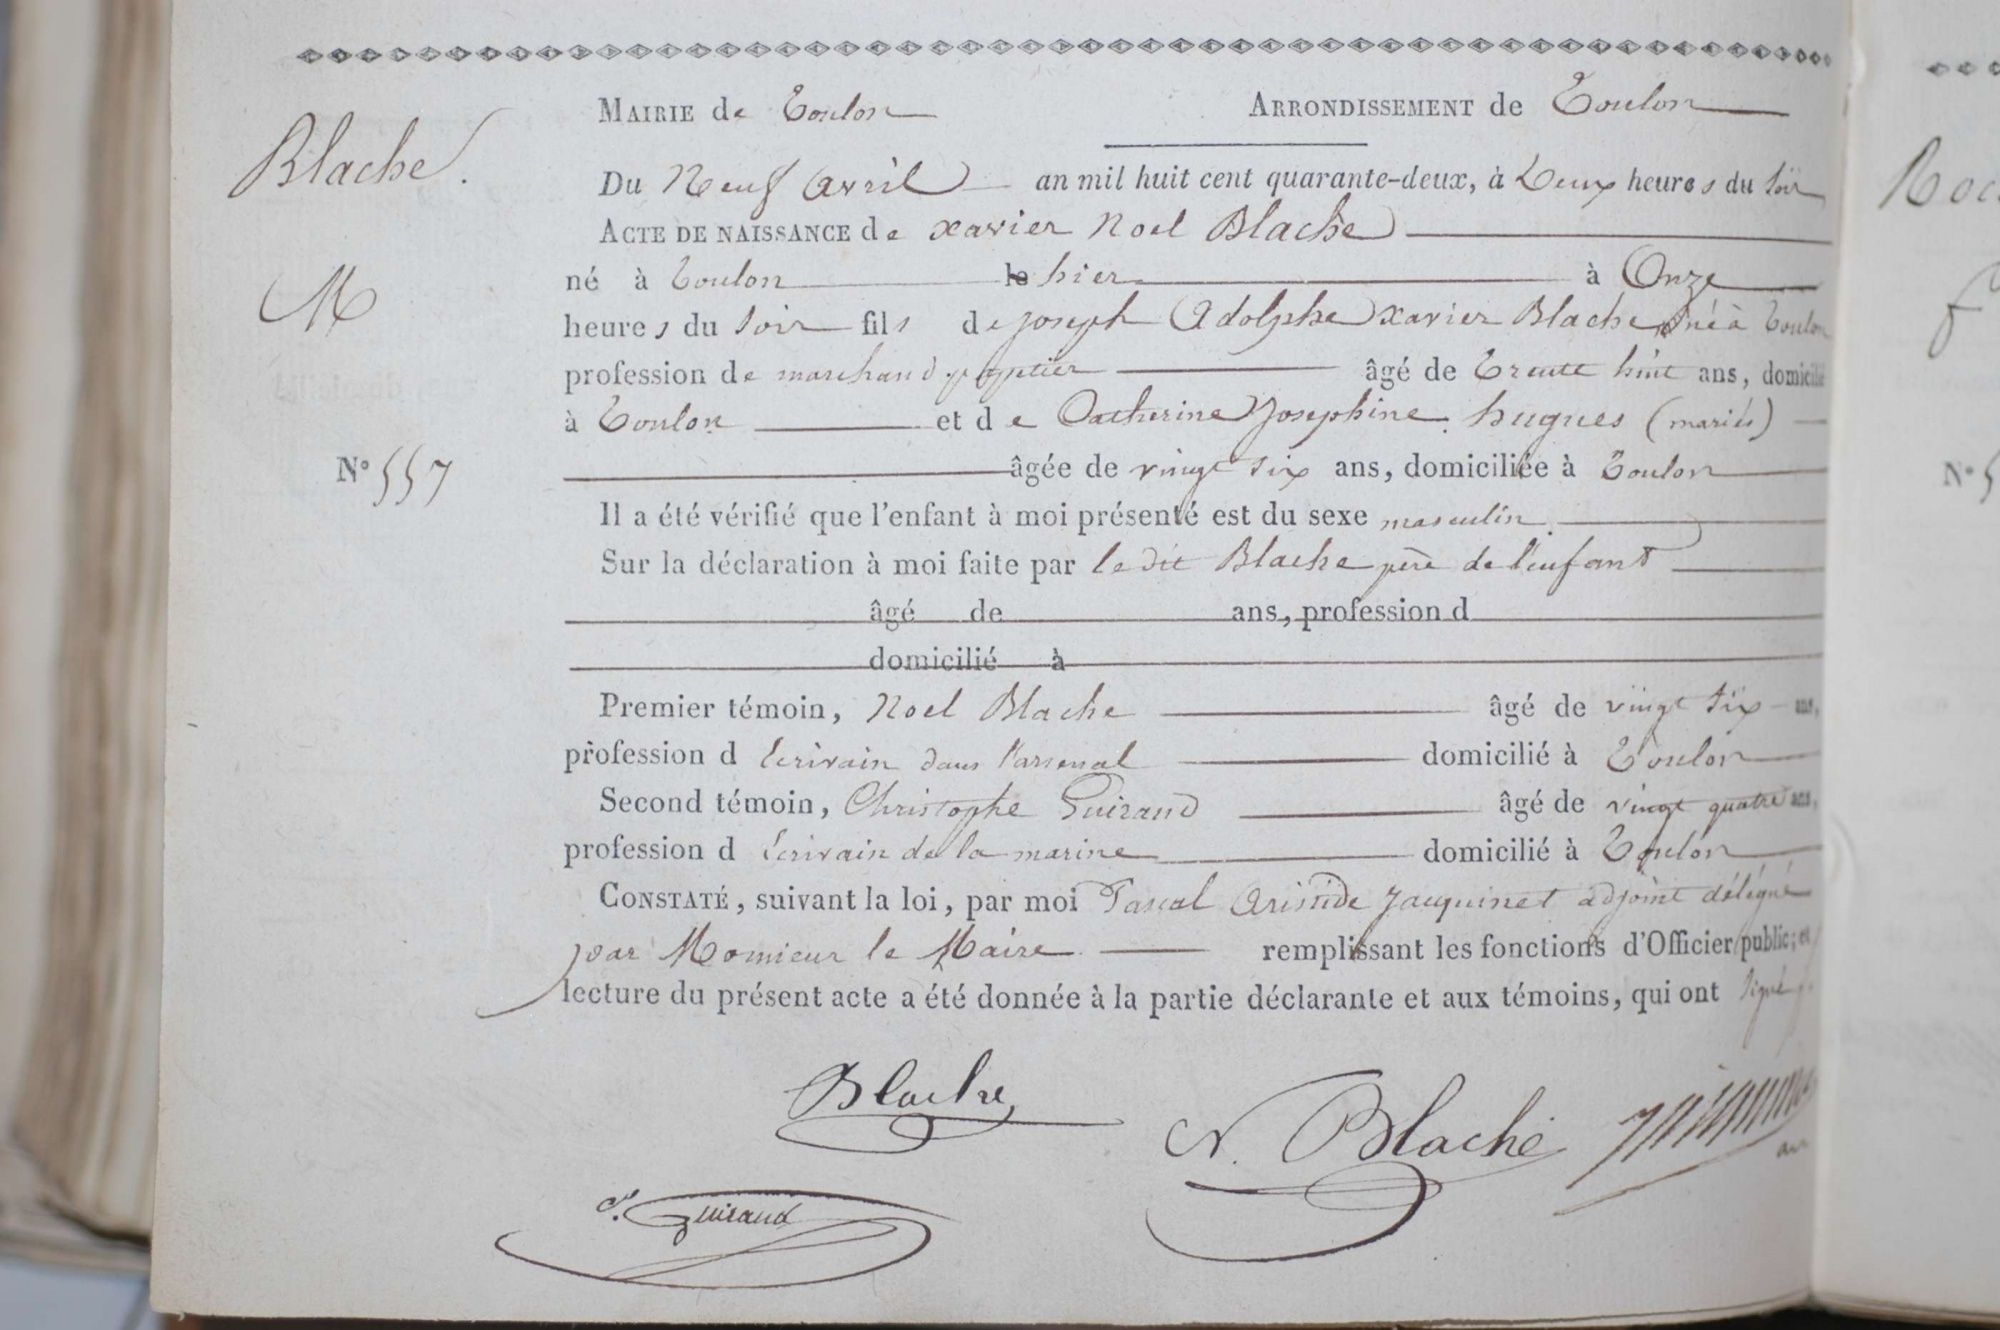 Mairie de Toulon Arrondissement de Toulon
Blache.
Du Neuf Avril an mil huit cent quarante-deux, à Deux heures du soir
Acte de naissance de xavier Noel Blache
M
né à Toulon le hier à Onze
heures du soir fils de joseph Adolphe xavier Blache né à Toulon
profession de marchand papetier âgé de Trente huit ans, domicilié
à Toulon et de Catherine Josephine hugues (mariés)
N° 557
âgée de vingt six ans, domiciliée à Toulon
Il a été vérifié que l'enfant à moi présenté est du sexe masculin.
Sur la déclaration à moi faite par le dit Blache père de l'enfant
âgé de ans, profession d
domicilié à
Premier témoin, Noel Blache âgé de vingt six ans,
profession d Ecrivain dans l'arsenal domicilié à Toulon
Second témoin, Christophe Guiraud âgé de vingt quatre ans,
profession d Ecrivain de la marine domicilié à Toulon
Constaté, suivant la loi, par moi Pascal Aristide Jacquinet adjoint délégué
par Monsieur le Maire remplissant les fonctions d'Officier public; et
lecture du présent acte a été donnée à la partie déclarante et aux témoins, qui ont signé
Blache
N. Blache
C. Guiraud
Roc
N° 5